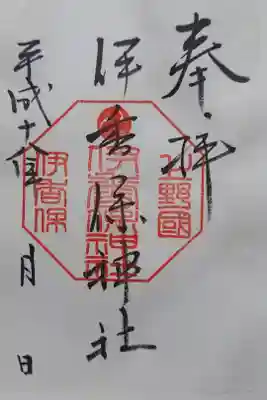 奉拝
伊香保神社
平成十八年 月 日
上野國
伊香保神社
伊香保